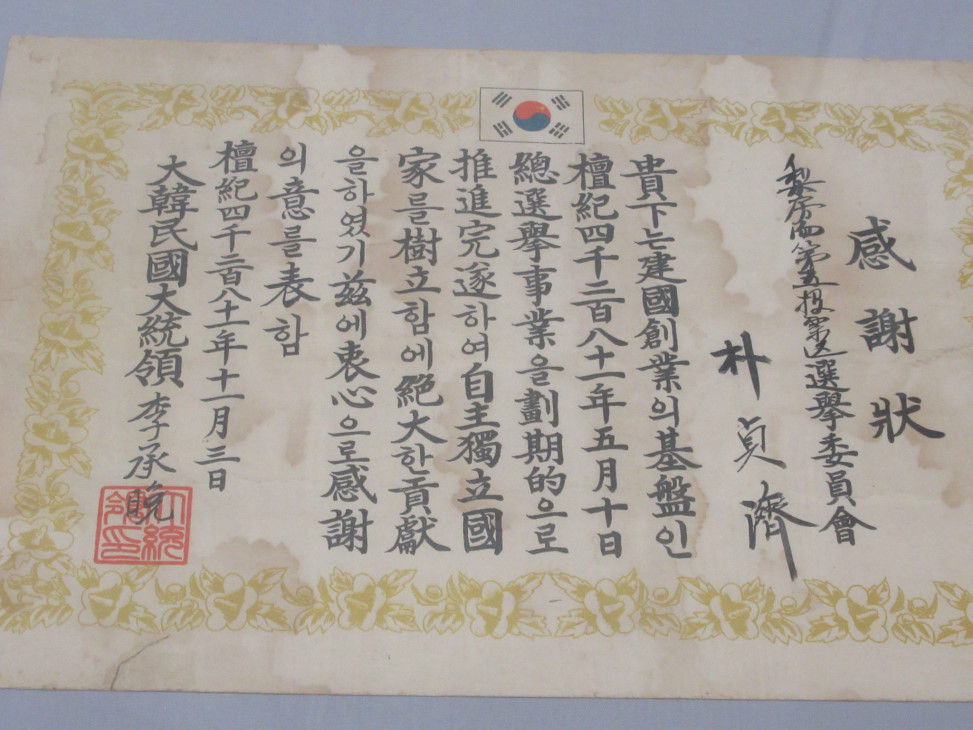 感謝狀
梨房面第五投票区選擧委員會
朴貞濟
貴下는建國創業의基盤인
檀紀四千二百八十一年五月十日
總選擧事業을劃期的으로
推進完遂하여自主獨立國
家를樹立함에絶大한貢獻
을하였기玆에衷心으로感謝
의意를表함
檀紀四千二百八十一年十一月三日
大韓民國大統領 李承晩
大統領印